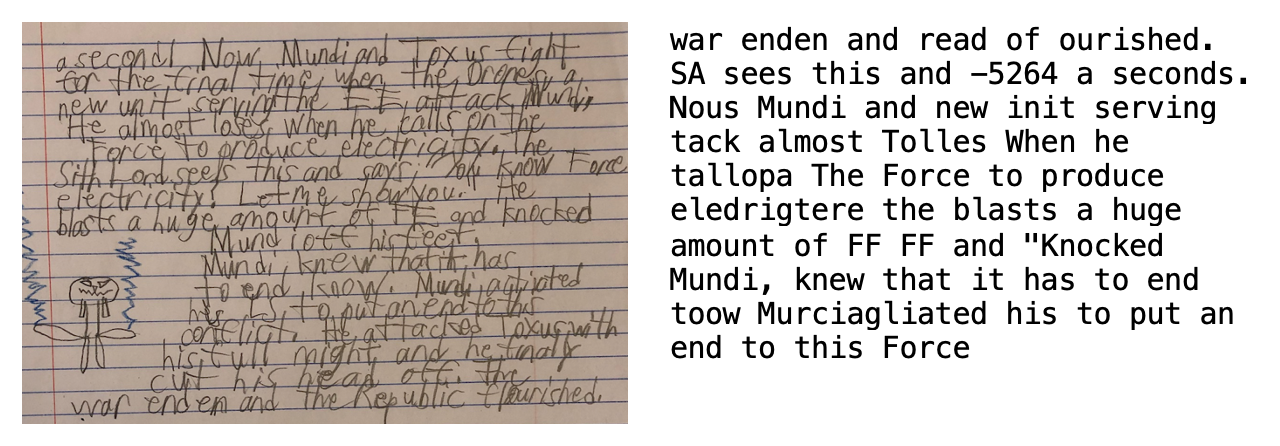 a second! Now, Mundi and Toxus fight
for the final time, when the Drones, a
new unit serving the FF, attack Mundi,
He almost loses, when he calls on the
Force to produce electricity. The
Sith Lord sees this and says, "You know Force
electricity! Let me show you." He
blasts a huge amount of FE and knocked
Mundi off his feet.
Mundi, knew that it has
to end, know. Mundi, activated
his LS, to put an end to this
conflict. He attacked Toxus with
his full might, and he finaly
cut his head off. The
war enden and the Republic flourished.
war enden and read of ourished.
SA sees this and -5264 a seconds.
Nous Mundi and new init serving
tack almost Tolles When he
tallopa The Force to produce
eledrigtere the blasts a huge
amount of FF FF and "Knocked
Mundi, knew that it has to end
toow Murciagliated his to put an
end to this Force